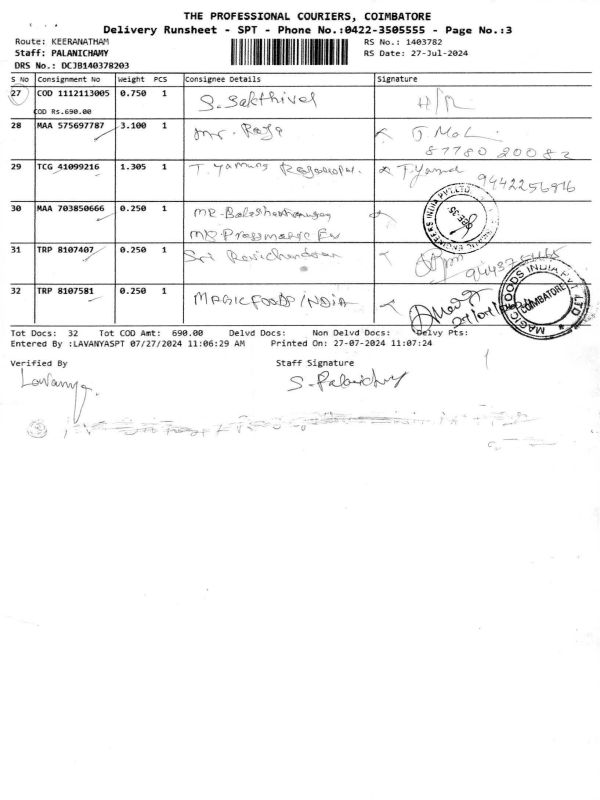 THE PROFESSIONAL COURIERS, COIMBATORE
Delivery Runsheet - SPT - Phone No.:0422-3505555 - Page No.:3
Route: KEERANATHAM RS No.: 1403782
Staff: PALANICHAMY RS Date: 27-Jul-2024
DRS No.: DCJB140378203
S No Consignment No Weight PCS Consignee Details Signature
27 COD 1112113005 0.750 1 S. Sakthivel H/R
COD Rs.690.00
28 MAA 575697787 3.100 1 Mr. Raja
87780 20082
29 TCG 41099216 1.305 1 T. Yamuna
9442256916
30 MAA 703850666 0.250 1
31 TRP 8107407 0.250 1 Sri Ravichandran
32 TRP 8107581 0.250 1 MAGIC FOODS INDIA
MAGIC FOODS INDIA PVT LTD
COIMBATORE
Tot Docs: 32 Tot COD Amt: 690.00 Delvd Docs: Non Delvd Docs: Delvy Pts:
Entered By :LAVANYASPT 07/27/2024 11:06:29 AM Printed On: 27-07-2024 11:07:24
Verified By Staff Signature
Lavanya. S. Palanichamy